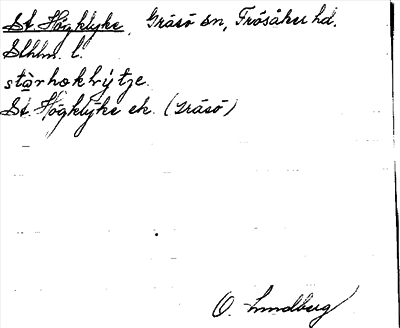 St. Högklyke, Gräsö sn, Frösåker hd.
Sthlm. l.
stàrhøkklýtje.
St. Högklyke ek. (Gräsö)
O. Lundberg